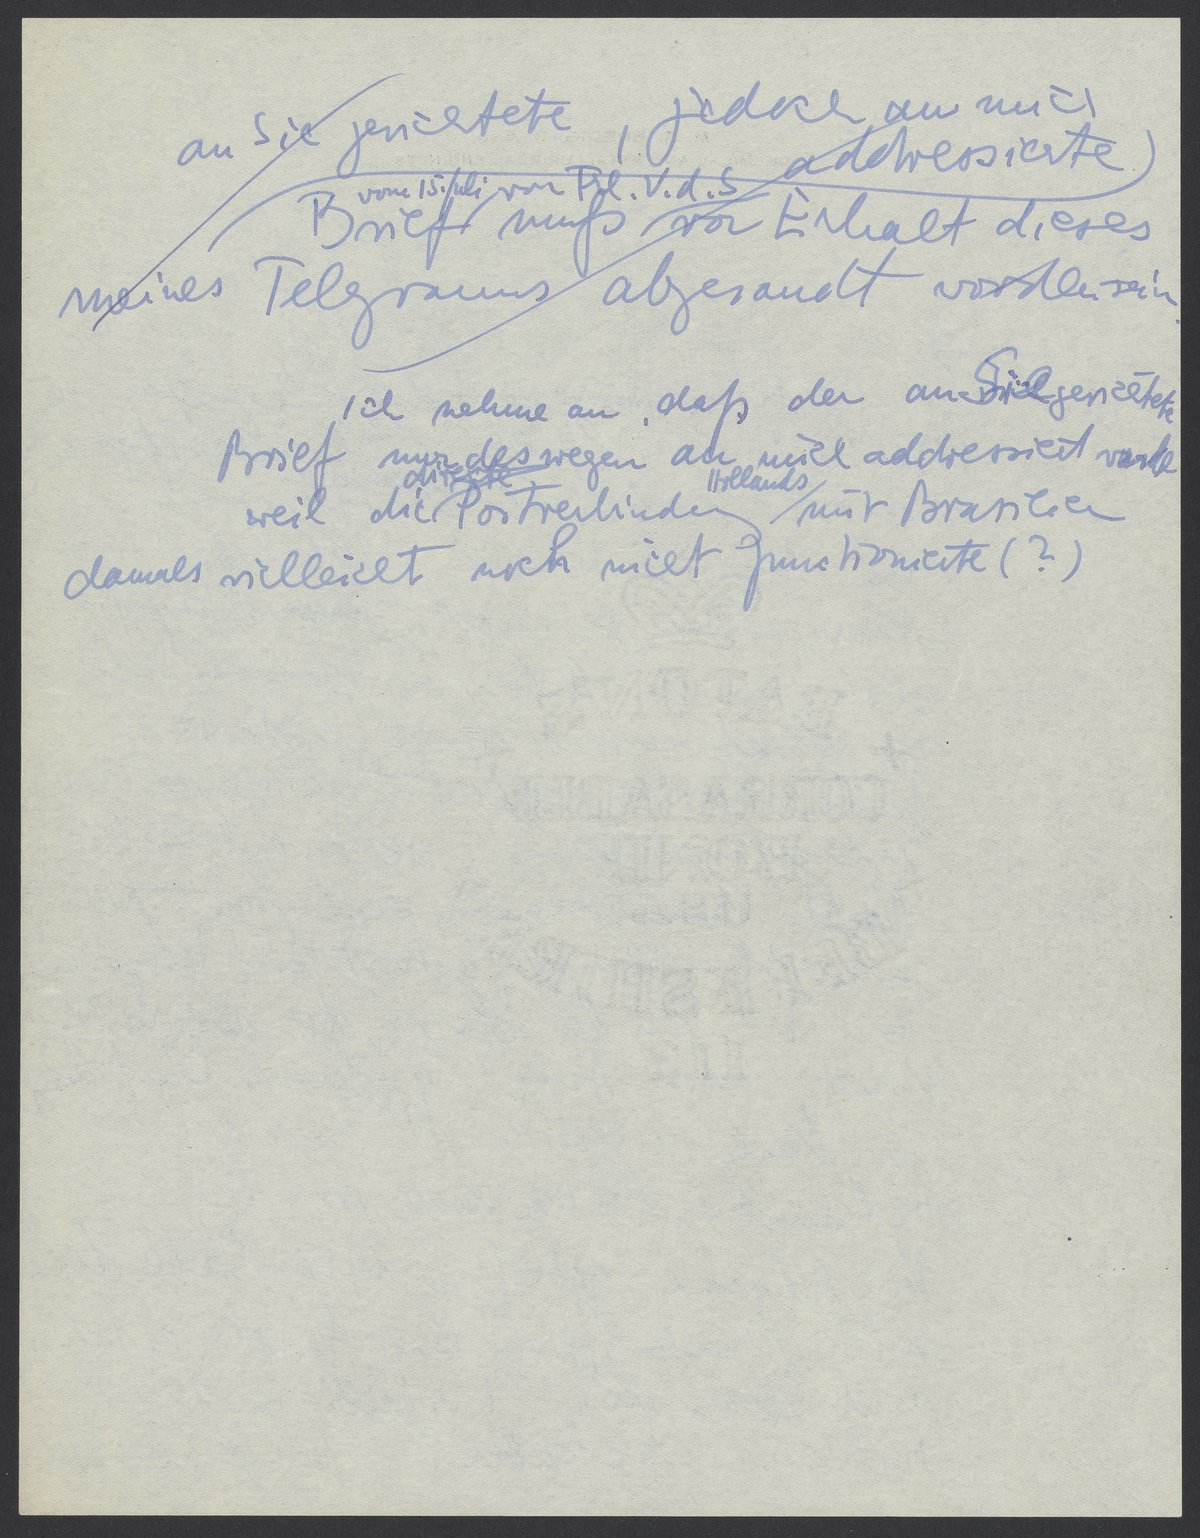 an Sie gerichtete, jedoch an mich
addressierte)
vom 15. Juli von Frl. V. d. S
Brief muß vor Erhalt dieses
meines Telegramms abgesandt worden sein.
Ich nehme an, daß der an Sie gerichtete
Brief nur deswegen an mich addressiert wurde
direkte Hollands
weil die Postverbindung mit Brasilien
damals vielleicht noch nicht functionierte (?)